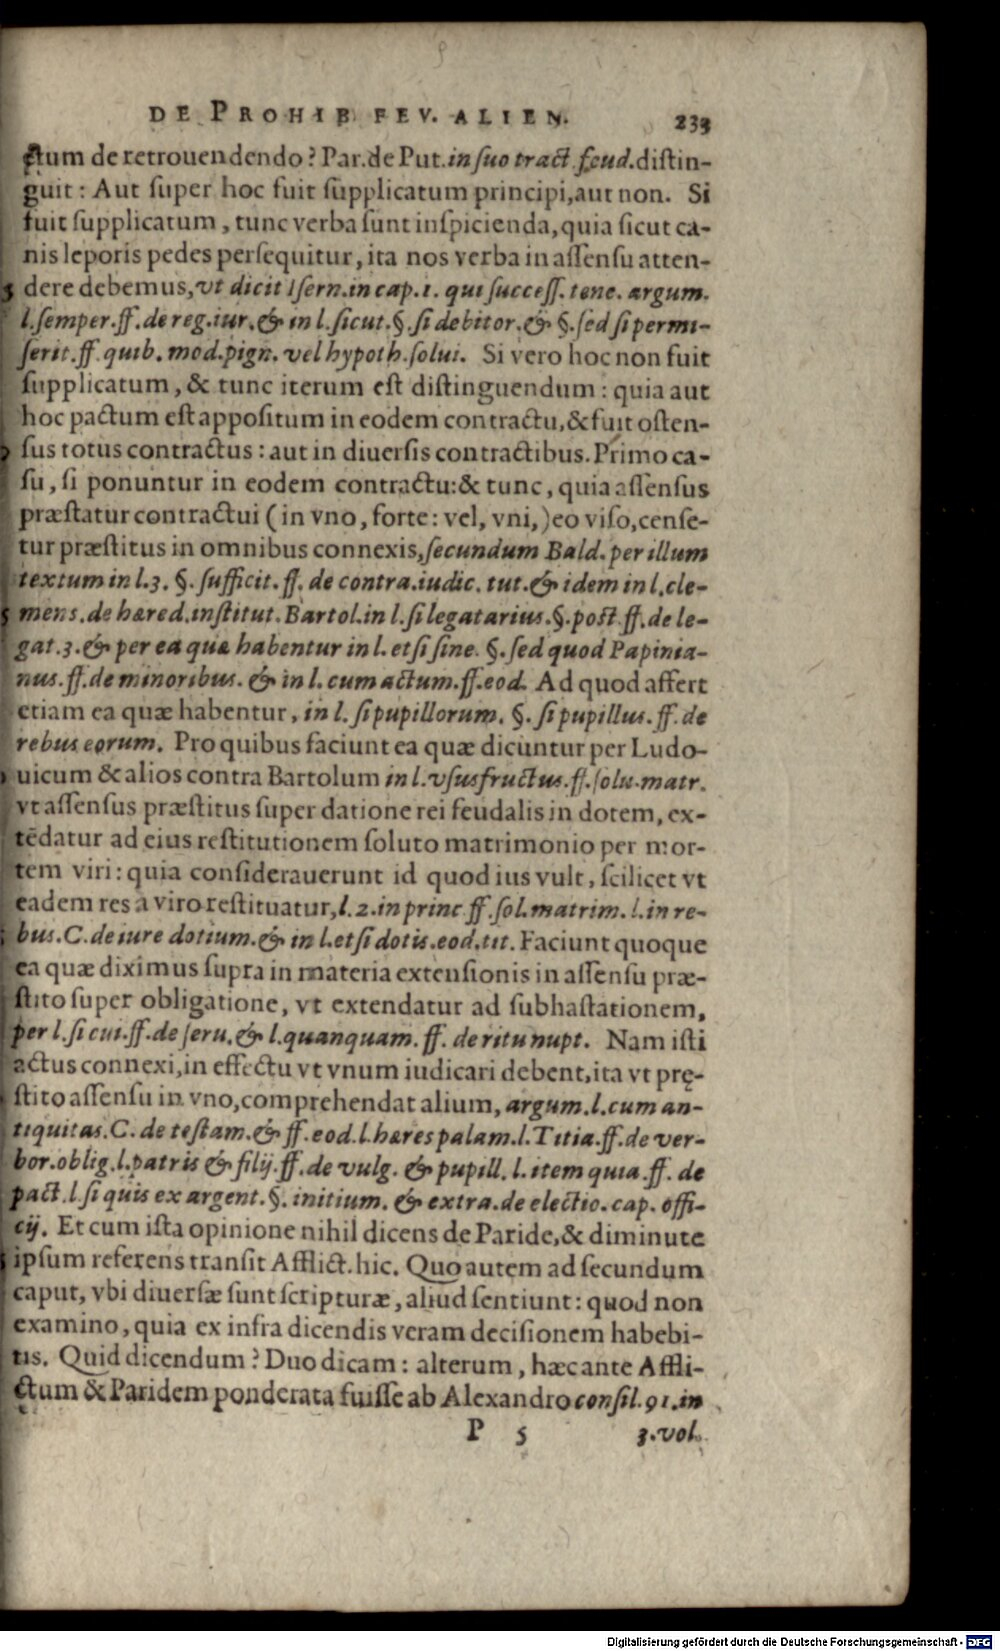 DE PROHIB FEV. ALIEN. 233
ctum de retrouendendo? Par. de Put. in suo tract feud. distin-
guit: Aut super hoc fuit supplicatum principi, aut non. Si
fuit supplicatum, tunc verba sunt inspicienda, quia sicut ca-
nis leporis pedes persequitur, ita nos verba in assensu atten-
dere debemus, vt dicit Isern. in cap. 1. qui success. tene. argum.
l. semper. ff. de reg. iur. & in l. sicut. §. si debitor. & §. sed si permi-
serit. ff. quib. mod. pign. vel hypoth. solui. Si vero hoc non fuit
supplicatum, & tunc iterum est distinguendum: quia aut
hoc pactum est appositum in eodem contractu, & fuit osten-
sus totus contractus: aut in diuersis contractibus. Primo ca-
su, si ponuntur in eodem contractu: & tunc, quia assensus
præstatur contractui (in vno, forte: vel, vni,) eo viso, cense-
tur præstitus in omnibus connexis, secundum Bald. per illum
textum in l. 3. §. sufficit. ff. de contra. iudic. tut. & idem in l. cle-
mens. de hæred. institut. Bartol. in l. si legatarius. §. post. ff. de le-
gat. 3. & per ea quæ habentur in l. etsi sine. §. sed quod Papinia-
nus. ff. de minoribus. & in l. cum actum. ff. eod. Ad quod affert
etiam ea quæ habentur, in l. si pupillorum. §. si pupillus. ff. de
rebus eorum. Pro quibus faciunt ea quæ dicuntur per Ludo-
uicum & alios contra Bartolum in l. vsusfructus. ff. solu. matr.
vt assensus præstitus super datione rei feudalis in dotem, ex-
tēdatur ad eius restitutionem soluto matrimonio per mor-
tem viri: quia considerauerunt id quod ius vult, scilicet vt
eadem res a viro restituatur, l. 2. in princ ff. sol. matrim. l. in re-
bus. C. de iure dotium. & in l. etsi dotis. eod. tit. Faciunt quoque
ea quæ diximus supra in materia extensionis in assensu præ-
stito super obligatione, vt extendatur ad subhastationem,
per l. si cui. ff. de seru. & l. quanquam. ff. de ritu nupt. Nam isti
actus connexi, in effectu vt vnum iudicari debent, ita vt prę-
stito assensu in vno, comprehendat alium, argum. l. cum an-
tiquitas. C. de testam. & ff. eod. l. hæres palam. l. Titia. ff. de ver-
bor. oblig. l. patris & filij. ff. de vulg. & pupill. l. item quia. ff. de
pact. l. si quis ex argent. §. initium. & extra. de electio. cap. offi-
cij. Et cum ista opinione nihil dicens de Paride, & diminute
ipsum referens transit Afflict. hic. Quo autem ad secundum
caput, vbi diuersæ sunt scripturæ, aliud sentiunt: quod non
examino, quia ex infra dicendis veram decisionem habebi-
tis. Quid dicendum? Duo dicam: alterum, hæc ante Affli-
ctum & Paridem ponderata fuisse ab Alexandro consil. 91. in
P 5 3. vol.
Digitalisierung gefördert durch die Deutsche Forschungsgemeinschaft - DFG